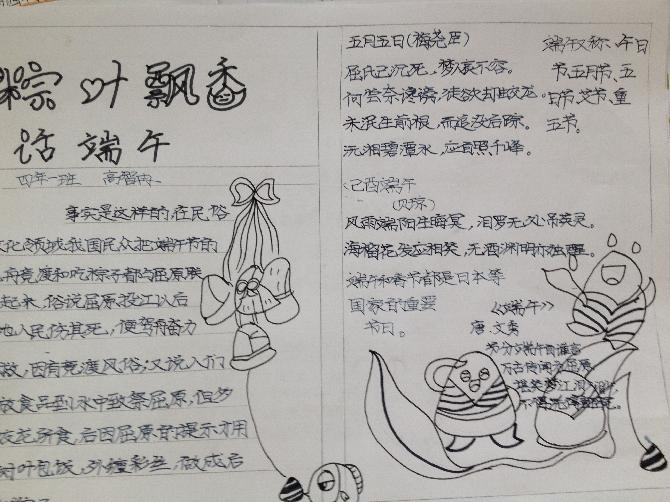 粽叶飘香
话端午
四年一班 高智冉
事实是这样的,在民俗
文化领域,我国民众把端午节的
龙舟竞渡和吃粽子都与屈原联
起来,俗说屈原投江以后
地人民伤其死,便驾舟奋力
救,因有竞渡风俗;又说人们
放食品到水中致祭屈原,但多
蛟龙所食,后因屈原的提示才用
树叶包饭,外缠彩丝,做成后
五月五日(梅尧臣)
屈氏已沉死,楚人哀不容。
何尝奈谗谤,徒欲却蛟龙。
未泯生前恨,而追没后踪。
沅湘碧潭水,应自照千峰。
端午又称、午日
节、五月节、五
日节、艾节、重
五节。
己酉端午
(贝琼)
风雨端阳生晦冥,汨罗无处吊英灵。
海榴花发应相笑,无酒渊明亦独醒。
端午和春节都是日本等
国家的重要
节日。
《端午》
唐.文秀
节分端午自谁言
万古传闻为屈原
堪笑楚江